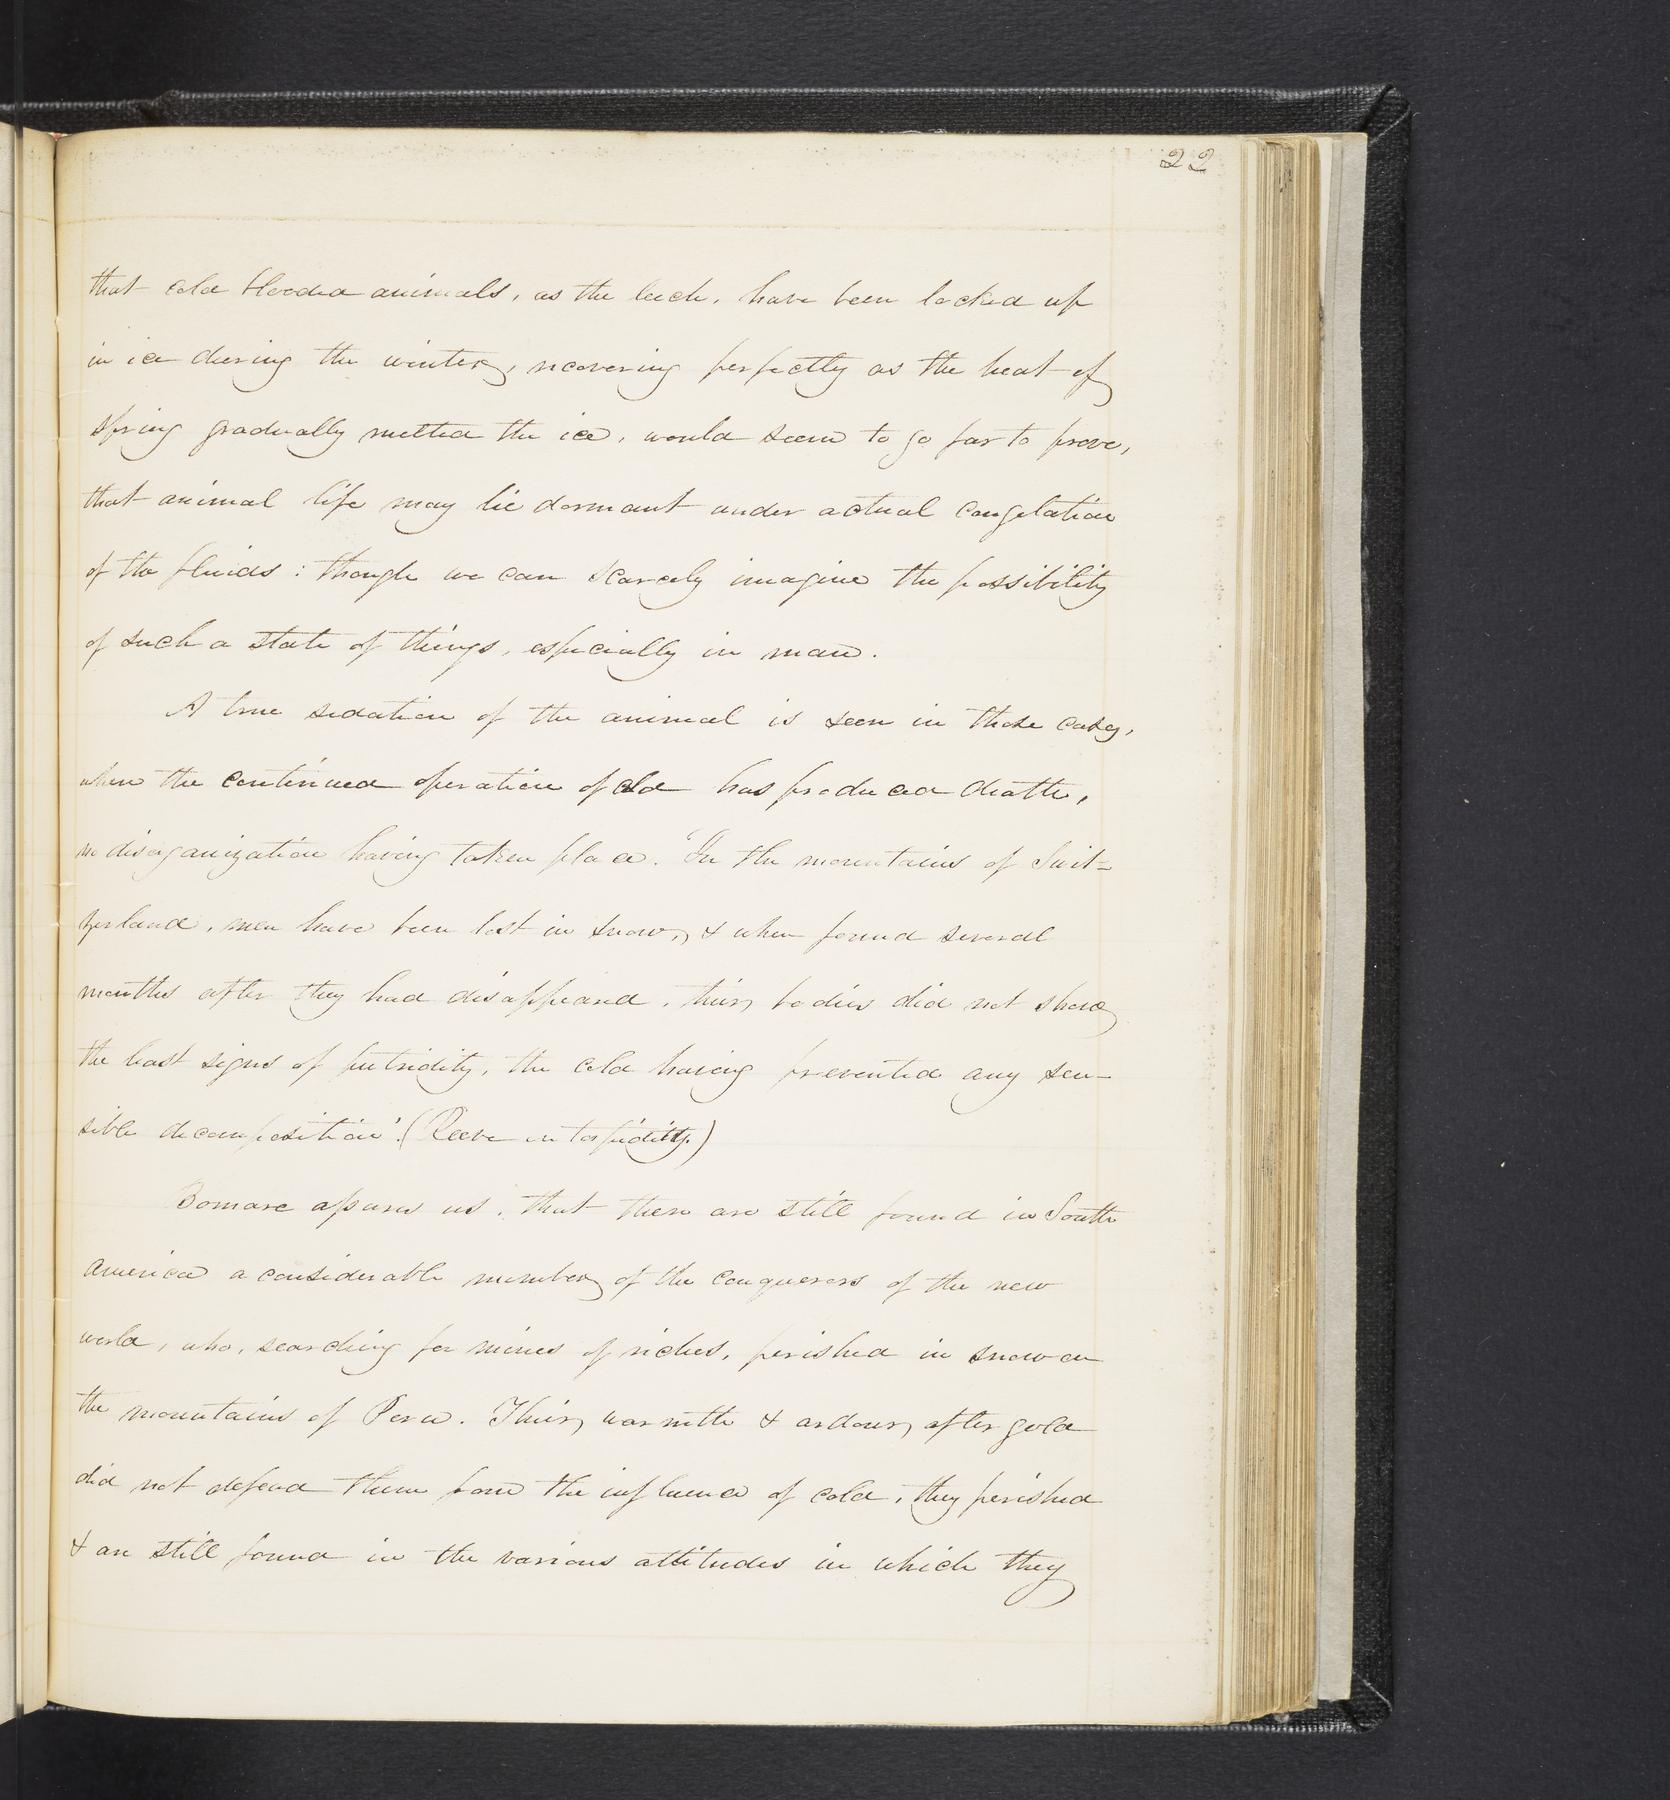 22
that cold blooded animals, as the leech, have been locked up
in ice during the winter, recovering perfectly as the heat of
spring gradually melted the ice, would seem to go far to prove,
that animal life may lie dormant under actual congelation
of the fluids : though we can scarcely imagine the possibility
of such a state of things, especially in man.
A true sedation of the animal is seen in those cases,
when the continued operation of cold has produced death,
no disorganization having taken place. "In the mountains of Swit-
zerland, men have been lost in snow, & when found several
months after they had disappeared, their bodies did not show
the least signs of putridity, the cold having prevented any sen-
sible decomposition". (Reeve on torpidity.)
Bomare assures us, that there are still found in South
America a considerable number of the conquerors of the new
world, who, searching for mines of riches, perished in snow on
the mountains of Peru. Their warmth & ardour after gold
did not defend them from the influence of cold, they perished
& are still found in the various attitudes in which they